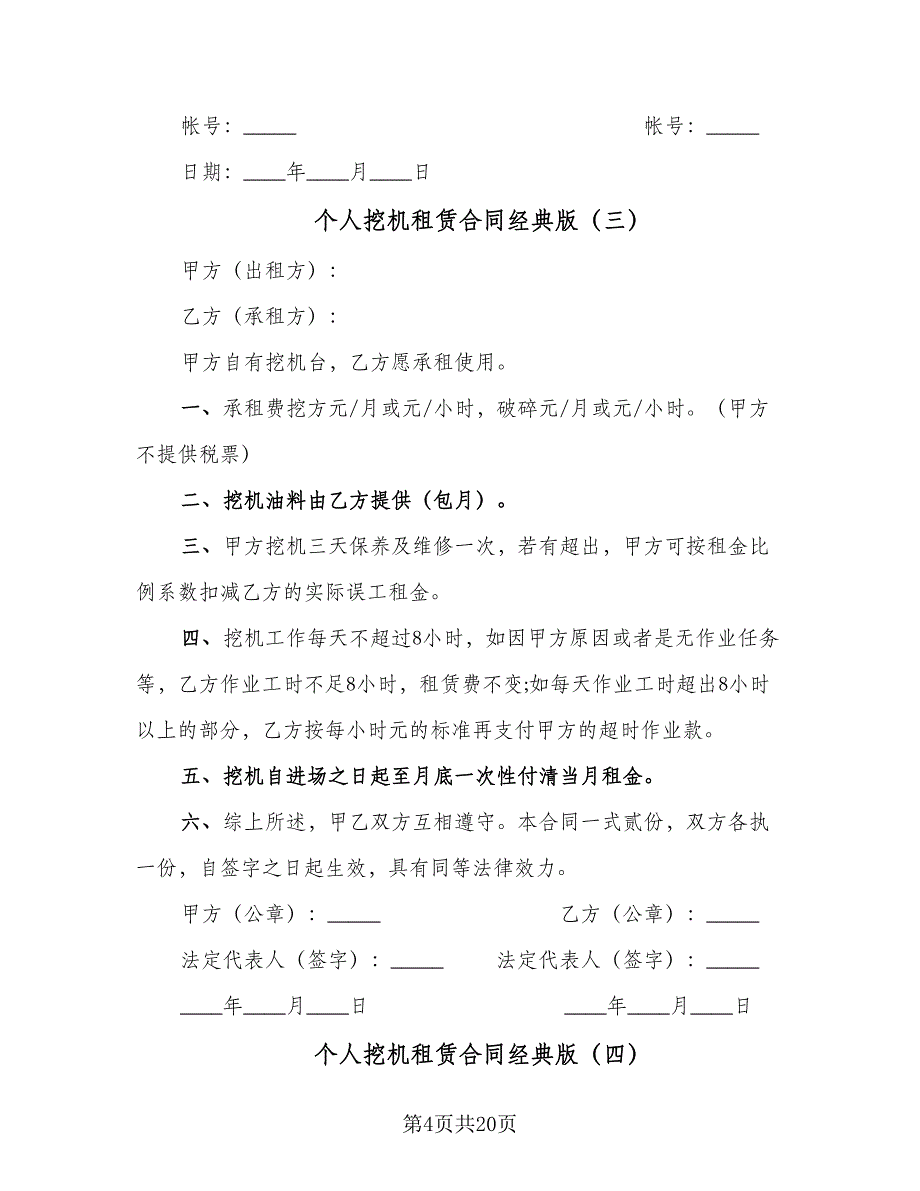 帐号：_____ 帐号：_____
日期：____年____月____日
个人挖机租赁合同经典版（三）
甲方（出租方）：
乙方（承租方）：
甲方自有挖机台，乙方愿承租使用。
一、承租费挖方元/月或元/小时，破碎元/月或元/小时。（甲方
不提供税票）
二、挖机油料由乙方提供（包月）。
三、甲方挖机三天保养及维修一次，若有超出，甲方可按租金比
例系数扣减乙方的实际误工租金。
四、挖机工作每天不超过8小时，如因甲方原因或者是无作业任务
等，乙方作业工时不足8小时，租赁费不变;如每天作业工时超出8小时
以上的部分，乙方按每小时元的标准再支付甲方的超时作业款。
五、挖机自进场之日起至月底一次性付清当月租金。
六、综上所述，甲乙双方互相遵守。本合同一式贰份，双方各执
一份，自签字之日起生效，具有同等法律效力。
甲方（公章）：_____ 乙方（公章）：_____
法定代表人（签字）：_____ 法定代表人（签字）：_____
____年____月____日 ____年____月____日
个人挖机租赁合同经典版（四）
第4页共20页